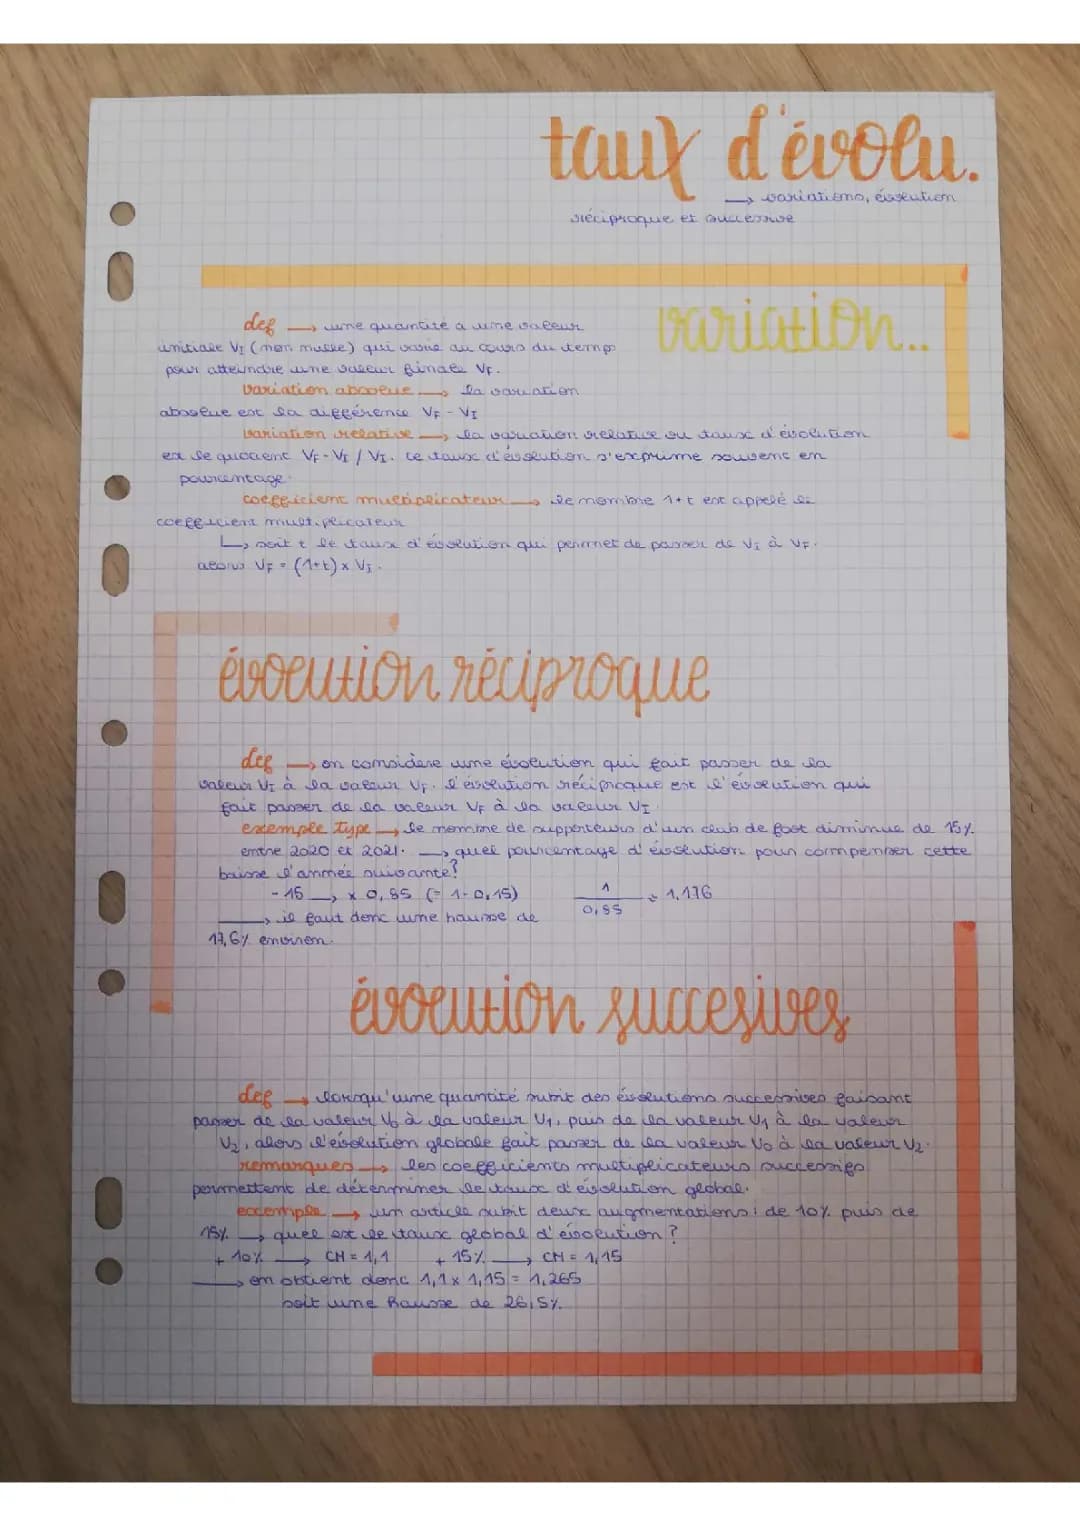 taux d'évolu.
→ variations, évolution
réciproque et successive
variation..
def → une quantité a une valeur
initiale VI (non nulle) qui varie au cours du temps
pour atteindre une valeur finale VF.
variation absolue → la variation
absolue est la différence VF - VI
variation relative → la variation relative ou taux d'évolution
est le quotient VF - VI / VI. Le taux d'évolution s'exprime souvent en
pourcentage.
coefficient multiplicateur → le nombre 1+t est appelé le
coefficient multiplicateur
↳ soit t le taux d'évolution qui permet de passer de VI à VF.
alors VF = (1+t) x VI.
évolution réciproque
def → on considère une évolution qui fait passer de la
valeur VI à la valeur VF. l'évolution réciproque est l'évolution qui
fait passer de la valeur VF à la valeur VI.
exemple type → le nombre de supporteurs d'un club de foot diminue de 15%
entre 2020 et 2021. → quel pourcentage d'évolution pour compenser cette
baisse l'année suivante?
- 15 → x 0,85 (= 1-0,15) 1/0,85 ≈ 1,176
→ il faut donc une hausse de
17,6% environ.
évolution succesives
def → lorsqu'une quantité subit des évolutions successives faisant
passer de la valeur V0 à la valeur V1, puis de la valeur V1 à la valeur
V2, alors l'évolution globale fait passer de la valeur V0 à la valeur V2.
remarques → les coefficients multiplicateurs successifs
permettent de déterminer le taux d'évolution global.
exemple → un article subit deux augmentations: de 10% puis de
15% → quel est le taux global d'évolution ?
+ 10% → CM = 1,1 + 15% → CM = 1,15
→ on obtient donc 1,1 x 1,15 = 1,265
soit une hausse de 26,5%.